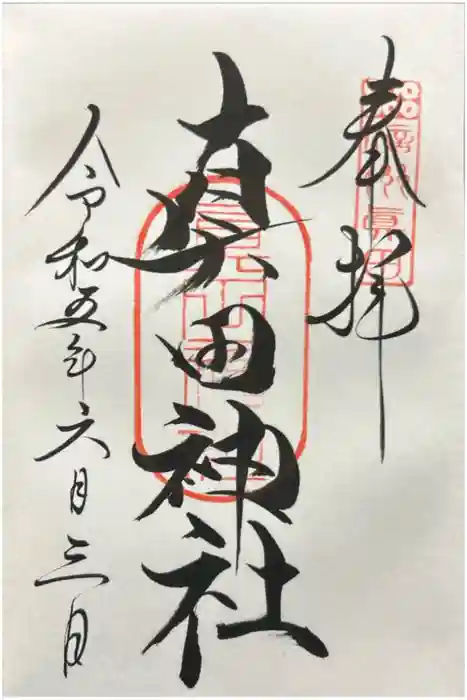 奉拝
真田神社
令和五年六月三日